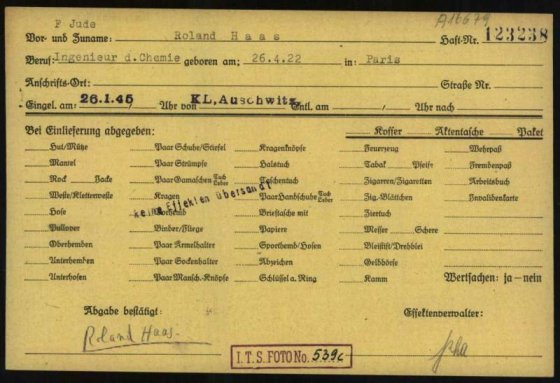 F Jude
A16679
Vor- und Zuname: Roland Haas Haft-Nr. 123238
Beruf: Ingenieur d.Chemie geboren am: 26.4.22 in: Paris
Anschrifts-Ort: Straße Nr.
Eingel. am: 26.1.45 Uhr von KL.Auschwitz Entl. am: Uhr nach
Bei Einlieferung abgegeben: Koffer Aktentasche Paket
Hut/Mütze Paar Schuhe/Stiefel Kragenknöpfe Feuerzeug Wehrpaß
Mantel Paar Strümpfe Halstuch Tabak Pfeife Fremdenpaß
Rock Jacke Paar Gamaschen Tuch Leder Taschentuch Zigarren/Zigaretten Arbeitsbuch
Weste/Kletterweste Kragen Paar Handschuhe Tuch Leder Zig.-Blättchen Invalidenkarte
Hose Vorhemd Brieftasche mit Ziertuch
keine Effekten übersandt
Pullover Binder/Fliege Papiere Messer Schere
Oberhemden Paar Ärmelhalter Sporthemd/Hosen Bleistift/Drehblei
Unterhemden Paar Sockenhalter Abzeichen Geldbörse
Unterhosen Paar Mansch.-Knöpfe Schlüssel a. Ring Kamm Wertsachen: ja – nein
Abgabe bestätigt: Effektenverwalter:
Roland Haas
I.T.S. FOTO No. 5396